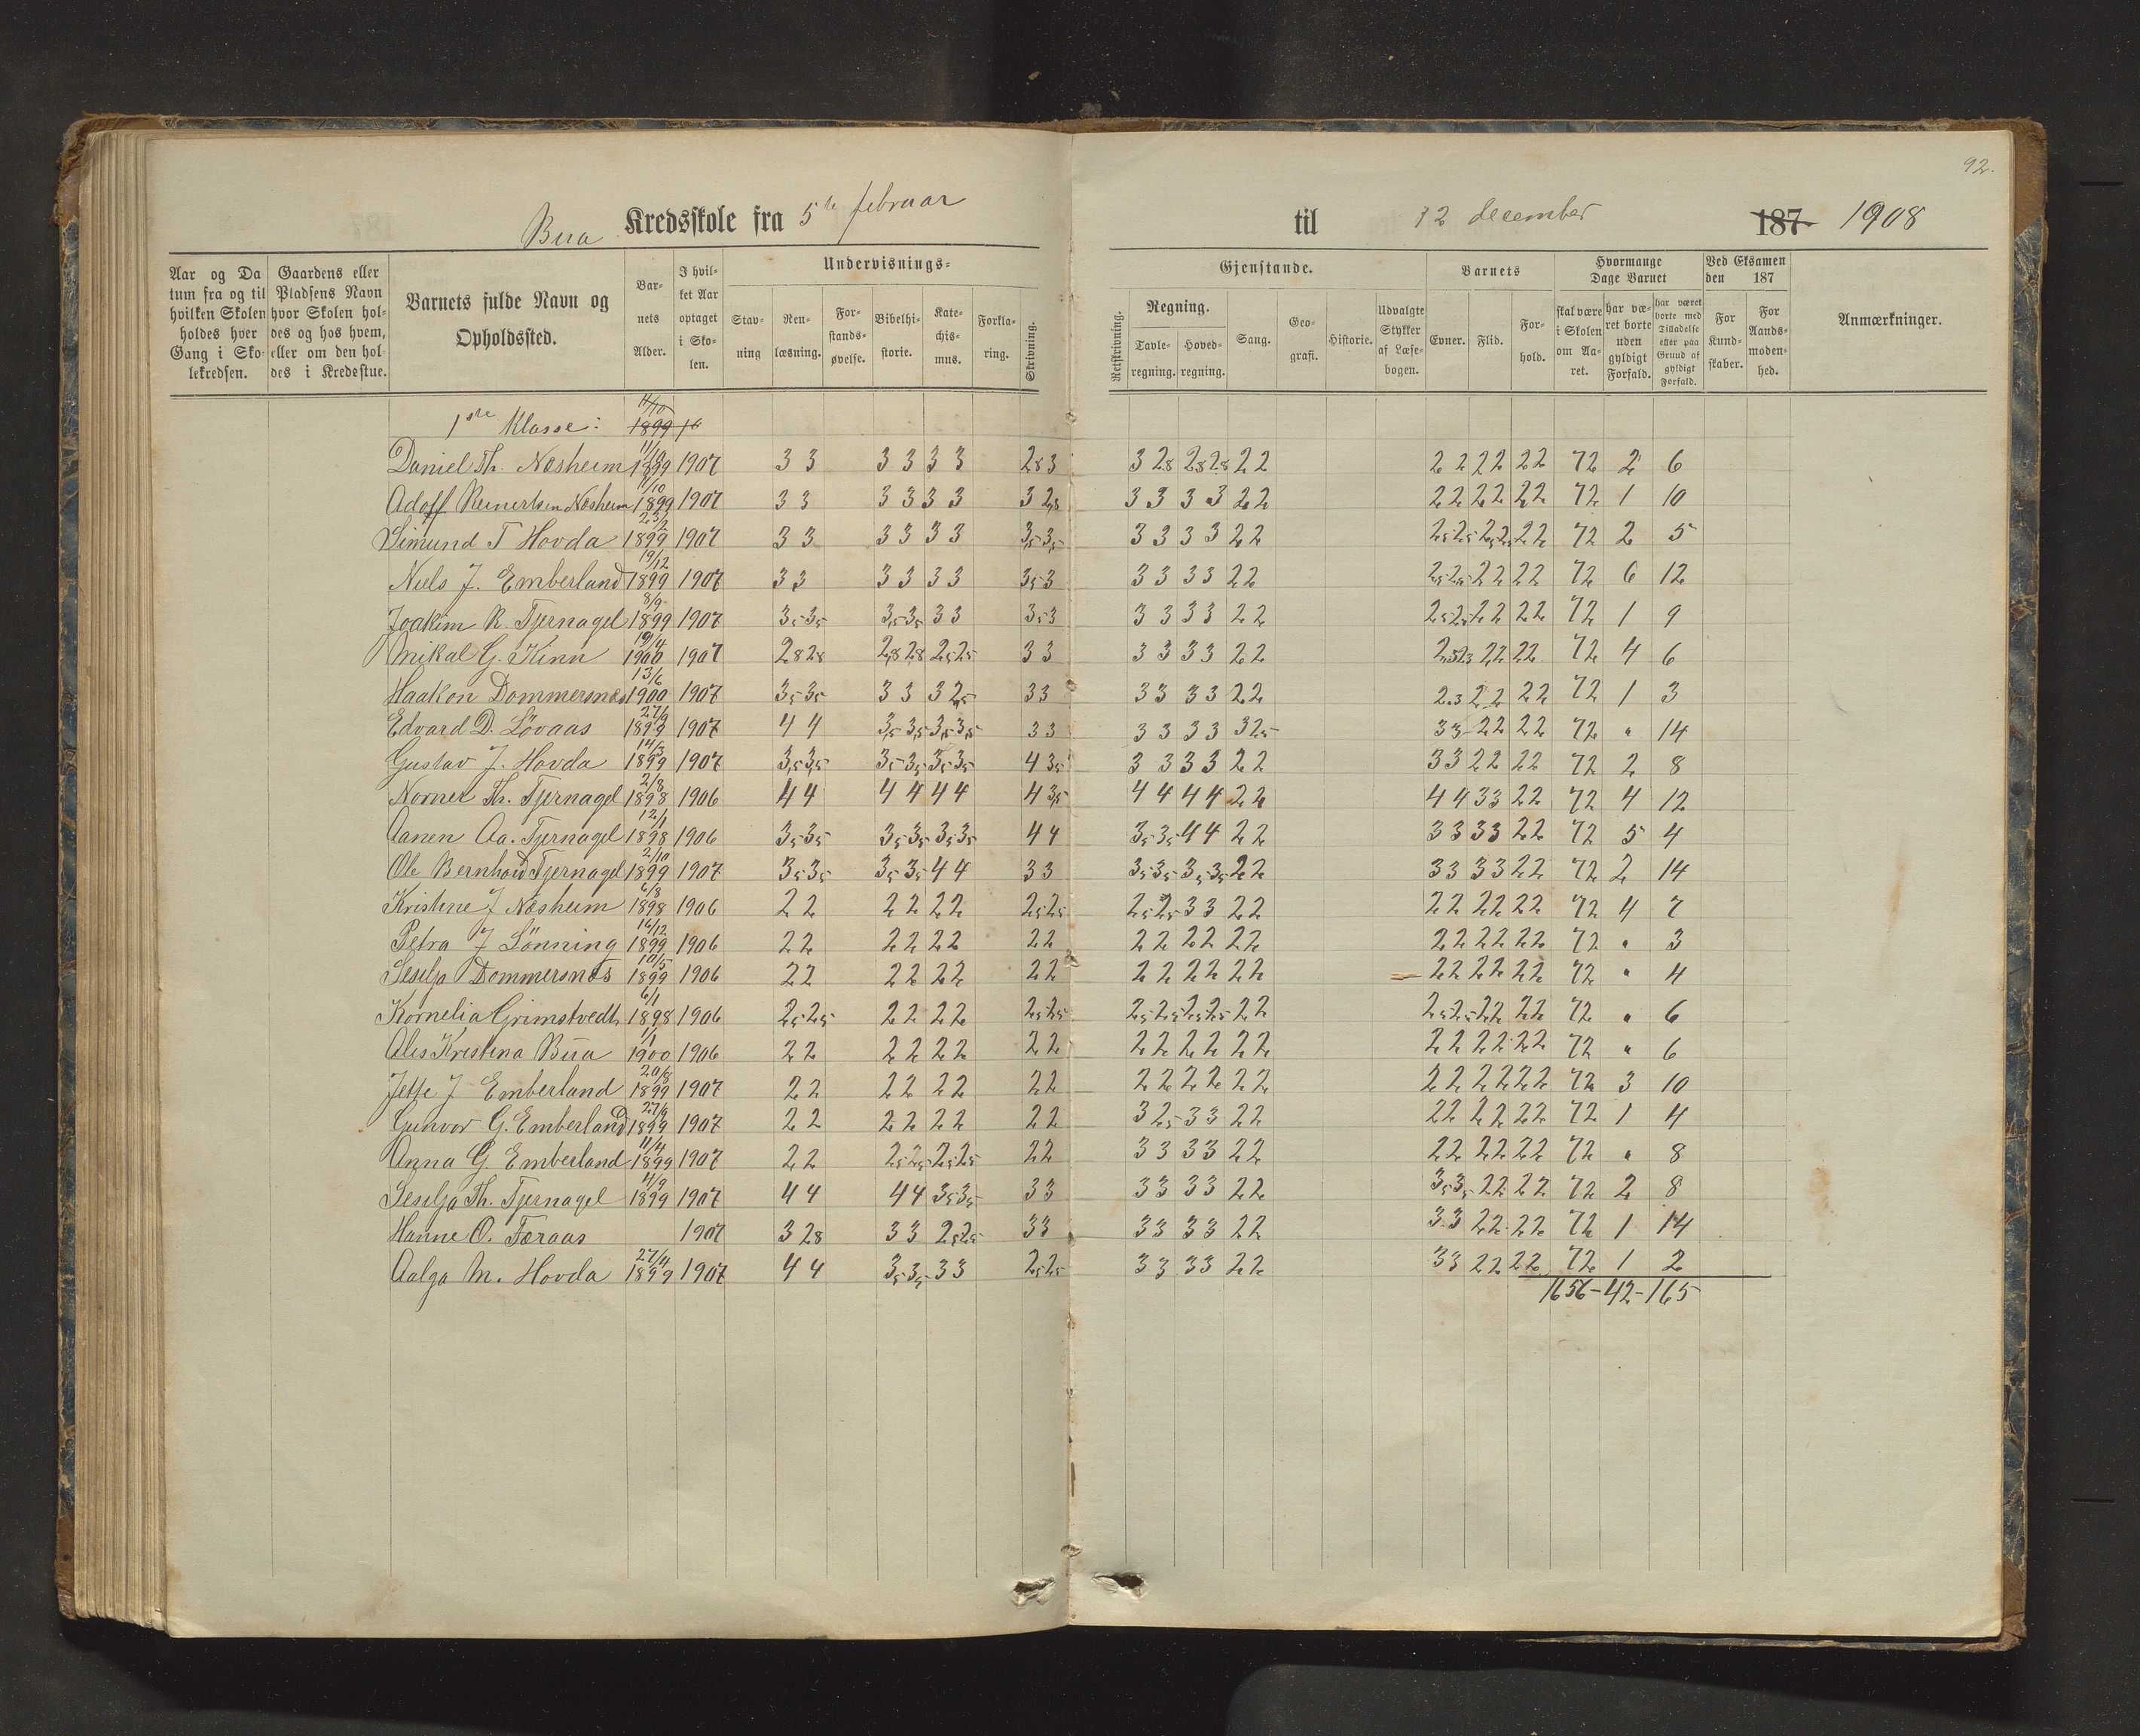 92.
Bua Kredsskole fra 5te februar til 12 december 187 1908
Aar og Da tum fra og til hvilken Skolen holdes hver Gang i Sko- lekredsen.
Gaardens eller Pladsens Navn hvor Skolen hol- des og hos hvem, eller om den hol- des i Kredsstue.
Barnets fulde Navn og Opholdssted.
Bar- nets Alder.
I hvil- ket Aar optaget i Sko- len.
Undervisnings- Gjenstande.
Stav- ning
Ren- læsning.
For- stands- øvelse.
Bibelhi- storie.
Kate- chis- mus.
Forkla- ring.
Skrivning.
Retskrivning.
Regning.
Tavle- regning.
Hoved- regning.
Sang.
Geo- grafi.
Historie.
Udvalgte Stykker af Læse- bogen.
Barnets
Evner.
Flid.
For- hold.
Hvormange Dage Barnet
skal være i Skolen om Aa- ret.
har væ- ret borte uden gyldigt Forfald.
har været borte med Tilladelse eller paa Grund af gyldigt Forfald.
Ved Eksamen den 187
For Kund- skaber.
For Aands- moden- hed.
Anmærkninger.
1ste Klasse: 11/10 1899
Daniel Th. Næsheim 11/10 1899 1907 3 3 3 3 3 3 2,8 3 3 2,8 2,8 2,8 2 2 2 2 2 2 2 2 72 2 6
Adolf Reinertsen Næsheim 1899 1907 3 3 3 3 3 3 3 2,8 3 3 3 3 2 2 2 2 2 2 2 2 72 1 10
Simund T Hovda 23/2 1899 1907 3 3 3 3 3 3 3,5 3,5 3 3 3 3 2 2 2,5 2,5 2,5 2,5 2 2 72 2 5
Niels J. Emberland 19/12 1899 1907 3 3 3 3 3 3 3,5 3 3 3 3 3 2 2 2,5 2,5 2 2 2 2 72 6 12
Joakim R. Tjernagel 8/9 1899 1907 3,5 3,5 3,5 3,5 3 3 3,5 3 3 3 3 3 2 2 2,5 2,5 2 2 2 2 72 1 9
Mikal G. Kinn 19/4 1900 1907 2,8 2,8 2,8 2,8 2,5 2,5 3 3 3 3 3 3 2 2 2,5 2,3 2 2 2 2 72 4 6
Haakon Dommersnæs 13/6 1900 1907 3,5 3,5 3 3 3 2,5 3 3 3 3 3 3 2 2 2,3 2 2 2 2 72 1 3
Edvard D. Lövaas 27/9 1899 1907 4 4 3,5 3,5 3,5 3,5 3 3 3 3 3 3 3 2,5 3 3 2 2 2 2 72 " 14
Gustav J. Hovda 14/3 1899 1907 3,5 3,5 3,5 3,5 3,5 3,5 4 3,5 3 3 3 3 2 2 3 3 2 2 2 2 72 2 8
Norner Th. Tjernagel 2/8 1898 1906 4 4 4 4 4 4 4 3,5 4 4 4 4 2 2 4 4 3 3 2 2 72 4 12
Aanen Aa. Tjernagel 12/1 1898 1906 3,5 3,5 3,5 3,5 3,5 3,5 4 4 3,5 3,5 4 4 2 2 3 3 3 3 2 2 72 5 4
Ole Bernhard Tjernagel 2/10 1899 1907 3,5 3,5 3,5 3,5 4 4 3 3 3,5 3,5 3,5 3,5 2 2 3 3 3 3 2 2 72 2 14
Kristine J Næsheim 6/8 1898 1906 2 2 2 2 2 2 2,5 2,5 2,5 2,5 3 3 2 2 2 2 2 2 2 2 72 4 7
Petra J Lönning 16/12 1899 1906 2 2 2 2 2 2 2 2 2 2 2 2 2 2 2 2 2 2 2 2 72 " 3
Sesilja Dommersnæs 10/5 1899 1906 2 2 2 2 2 2 2 2 2 2 2 2 2 2 2 2 2 2 2 2 72 " 4
Kornelia Grimstvedt 6/1 1898 1906 2,5 2,5 2 2 2 2 2,5 2,5 2,5 2,5 2,5 2,5 2 2 2,5 2,5 2 2 2 2 72 " 6
Ales Kristina Bua 1/1 1900 1906 2 2 2 2 2 2 2 2 2 2 2 2 2 2 2 2 2 2 2 2 72 " 6
Jette J Emberland 20/8 1899 1907 2 2 2 2 2 2 2 2 2 2 2 2 2 2 2 2 2 2 2 2 72 3 10
Gunvor G. Emberland 27/9 1899 1907 2 2 2 2 2 2 2 2 3 2,5 3 3 2 2 2 2 2 2 2 2 72 1 4
Anna G Emberland 11/4 1899 1907 2 2 2,5 2,5 2,5 2,5 2 2 3 3 3 3 2 2 2 2 2 2 2 2 72 " 8
Sesilja Th. Tjernagel 4/9 1899 1907 4 4 4 4 3,5 3,5 3 3 3 3 3 3 2 2 3,5 3,5 2 2 2 2 72 2 8
Hanne O. Færaas 1907 3 2,8 3 3 2,5 2,5 3 3 3 3 3 3 2 2 3 3 2 2 2 2 72 1 14
Aalga M. Hovda 27/4 1899 1907 4 4 3,5 3,5 3 3 2,5 2,5 3 3 3 3 2 2 3 3 2 2 2 2 72 1 2
1656-42-165